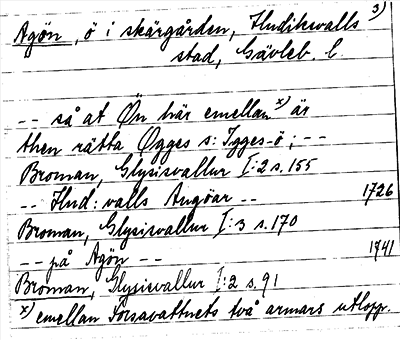 3)
Agön, ö i skärgården, Hudiksvalls
stad, Gävleb. l.
-- så at Ön här emellan x) är
then rätta Ogges s: Igges-ö; --
Broman, Glysisvallur I:2 s. 155
-- Hud: valls Angöar -- 1726
Broman, Glysisvallur I:3 s. 170
-- på Agön -- 1741
Broman, Glysisvallur I:2 s. 91
x) emellan Forsavattnets två armars utlopp.